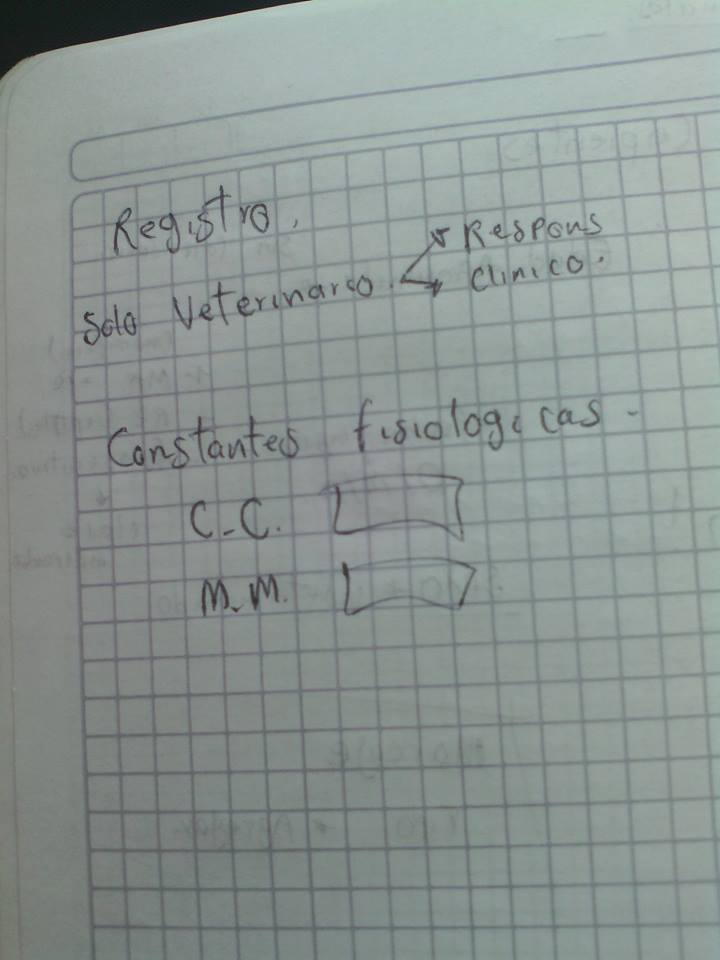 Registro.
Solo Veterinario. Respons
Clinico.
Constantes fisiologicas.
C.C.
M.M.